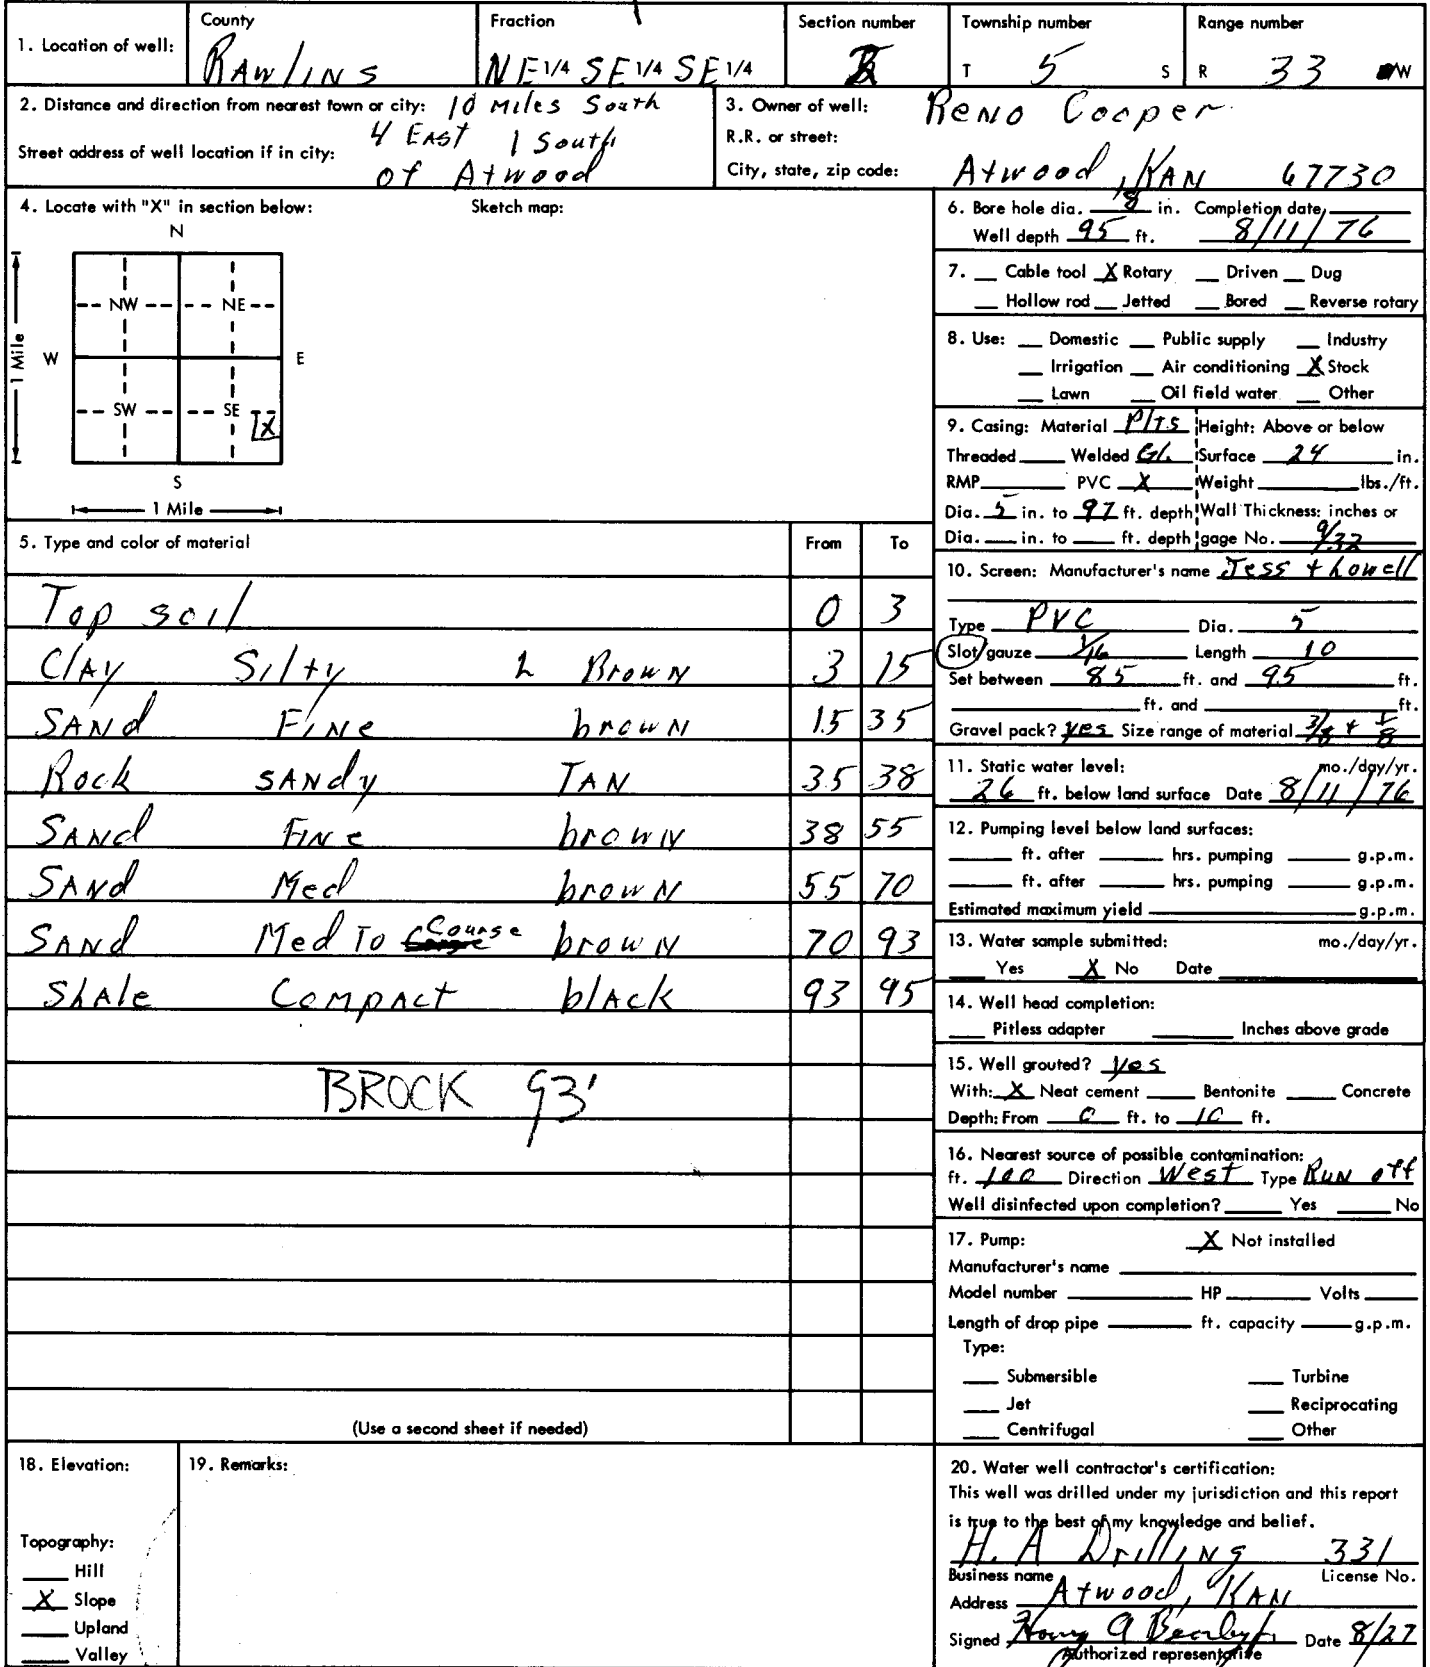 1. Location of well:
County
Rawlins
Fraction
NE 1/4 SE 1/4 SE 1/4
Section number
Township number
T 5 S
Range number
R 33 W
2. Distance and direction from nearest town or city: 10 miles South
4 East 1 South
Street address of well location if in city:
of Atwood
3. Owner of well: Reno Cooper
R.R. or street:
City, state, zip code: Atwood, KAN 67730
4. Locate with "X" in section below:
Sketch map:
N
NW NE
W E
1 Mile
SW SE X
S
1 Mile
5. Type and color of material From To
Top soil 0 3
Clay Silty L Brown 3 15
Sand Fine brown 15 35
Rock sandy Tan 35 38
Sand Fine brown 38 55
Sand Med brown 55 70
Sand Med To Course brown 70 93
Shale Compact black 93 95
BROCK 93'
(Use a second sheet if needed)
6. Bore hole dia. 8 in. Completion date
Well depth 95 ft. 8/11/76
7. Cable tool X Rotary Driven Dug
Hollow rod Jetted Bored Reverse rotary
8. Use: Domestic Public supply Industry
Irrigation Air conditioning X Stock
Lawn Oil field water Other
9. Casing: Material Plts Height: Above or below
Threaded Welded Gl. Surface 24 in.
RMP PVC X Weight lbs./ft.
Dia. 5 in. to 97 ft. depth Wall Thickness: inches or
Dia. in. to ft. depth gage No. 9/32
10. Screen: Manufacturer's name Jess + Lowell
Type PVC Dia. 5
Slot/gauze 1/16 Length 10
Set between 85 ft. and 95 ft.
ft. and ft.
Gravel pack? yes Size range of material 3/8 + 1/8
11. Static water level: mo./day/yr.
26 ft. below land surface Date 8/11/76
12. Pumping level below land surfaces:
ft. after hrs. pumping g.p.m.
ft. after hrs. pumping g.p.m.
Estimated maximum yield g.p.m.
13. Water sample submitted: mo./day/yr.
Yes X No Date
14. Well head completion:
Pitless adapter Inches above grade
15. Well grouted? yes
With: X Neat cement Bentonite Concrete
Depth: From 0 ft. to 10 ft.
16. Nearest source of possible contamination:
ft. 100 Direction West Type Run off
Well disinfected upon completion? Yes No
17. Pump: X Not installed
Manufacturer's name
Model number HP Volts
Length of drop pipe ft. capacity g.p.m.
Type:
Submersible Turbine
Jet Reciprocating
Centrifugal Other
18. Elevation:
Topography:
Hill
X Slope
Upland
Valley
19. Remarks:
20. Water well contractor's certification:
This well was drilled under my jurisdiction and this report
is true to the best of my knowledge and belief.
H. A Drilling 331
Business name License No.
Address Atwood, KAN
Signed Date 8/27
Authorized representative